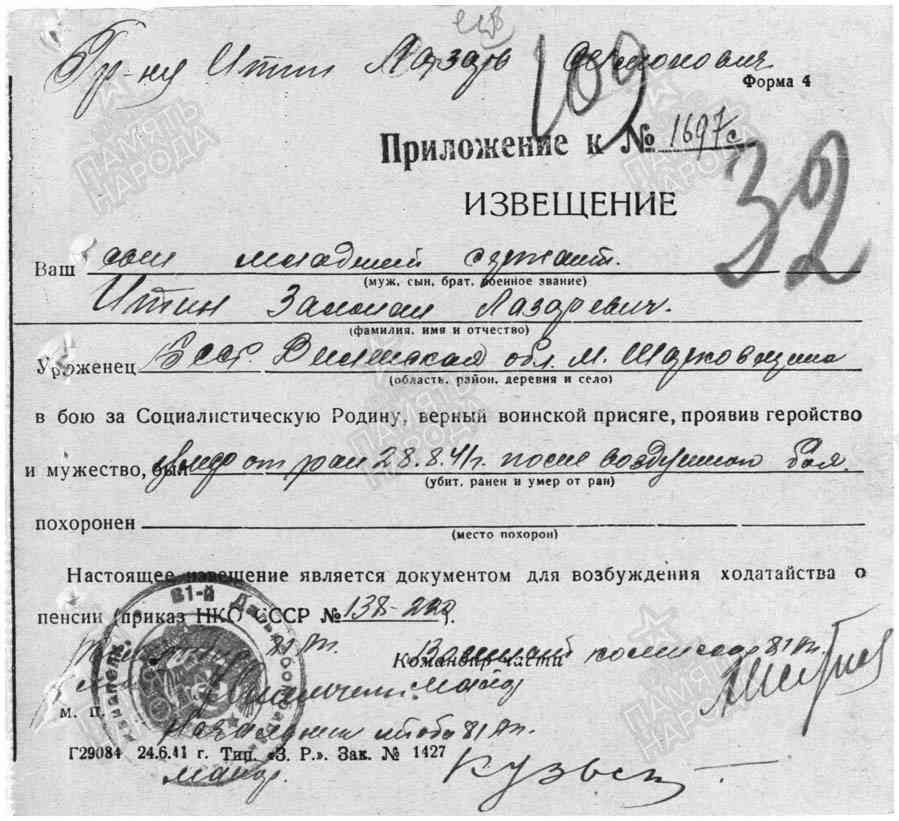 Гр-ну Итин Лазарь
109
Форма 4
Приложение к № 1697с
32
ИЗВЕЩЕНИЕ
Ваш сын младший сержант.
(муж, сын, брат, военное звание)
Итин Залман Лазаревич.
(фамилия, имя и отчество)
Уроженец БССР. обл. м. Шарковщина
(область, район, деревня и село)
в бою за Социалистическую Родину, верный воинской присяге, проявив геройство
и мужество, был от ран 28.8.41г. после воздушного боя.
(убит, ранен и умер от ран)
похоронен
(место похорон)
Настоящее извещение является документом для возбуждения ходатайства о
пенсии (приказ НКО СССР № 138-222).
81-й
Командир части
комиссар 81
майор
м. п.
Начальник штаба 81
Г29084 24.6.41 г. Тип. «З. Р.». Зак. № 1427
майор.
ПАМЯТЬ НАРОДА
ПАМЯТЬ НАРОДА
ПАМЯТЬ НАРОДА
ПАМЯТЬ НАРОДА
ПАМЯТЬ НАРОДА